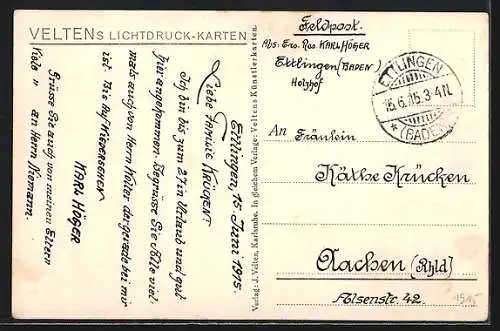 VELTENS LICHTDRUCK-KARTEN
Ettlingen 15 Juni 1915.
Liebe Familie KRÜCKEN!
Ich bin bis zum 27 in Urlaub und gut
hier angekommen. Begrüsse Sie Alle viel
mals auch von Herrn Koller der gerade bei mir
ist. Bis Auf WIEDERSEHEN
KARL HÖGER
Grüsse Sie auch von meinen Eltern
Viele " an Herrn Niemann.
Verlag: J. Velten, Karlsruhe. In gleichem Verlage: Veltens Künstlerkarten.
Feldpost.
Abs: Ers. Res. KARL HÖGER
Ettlingen (BADEN)
Holzhof
ETTLINGEN
15.6.15.3-4N.
* (BADEN)
An Fräulein
Käthe Krücken
Aachen (Rhld)
Alsenstr. 42.
1915